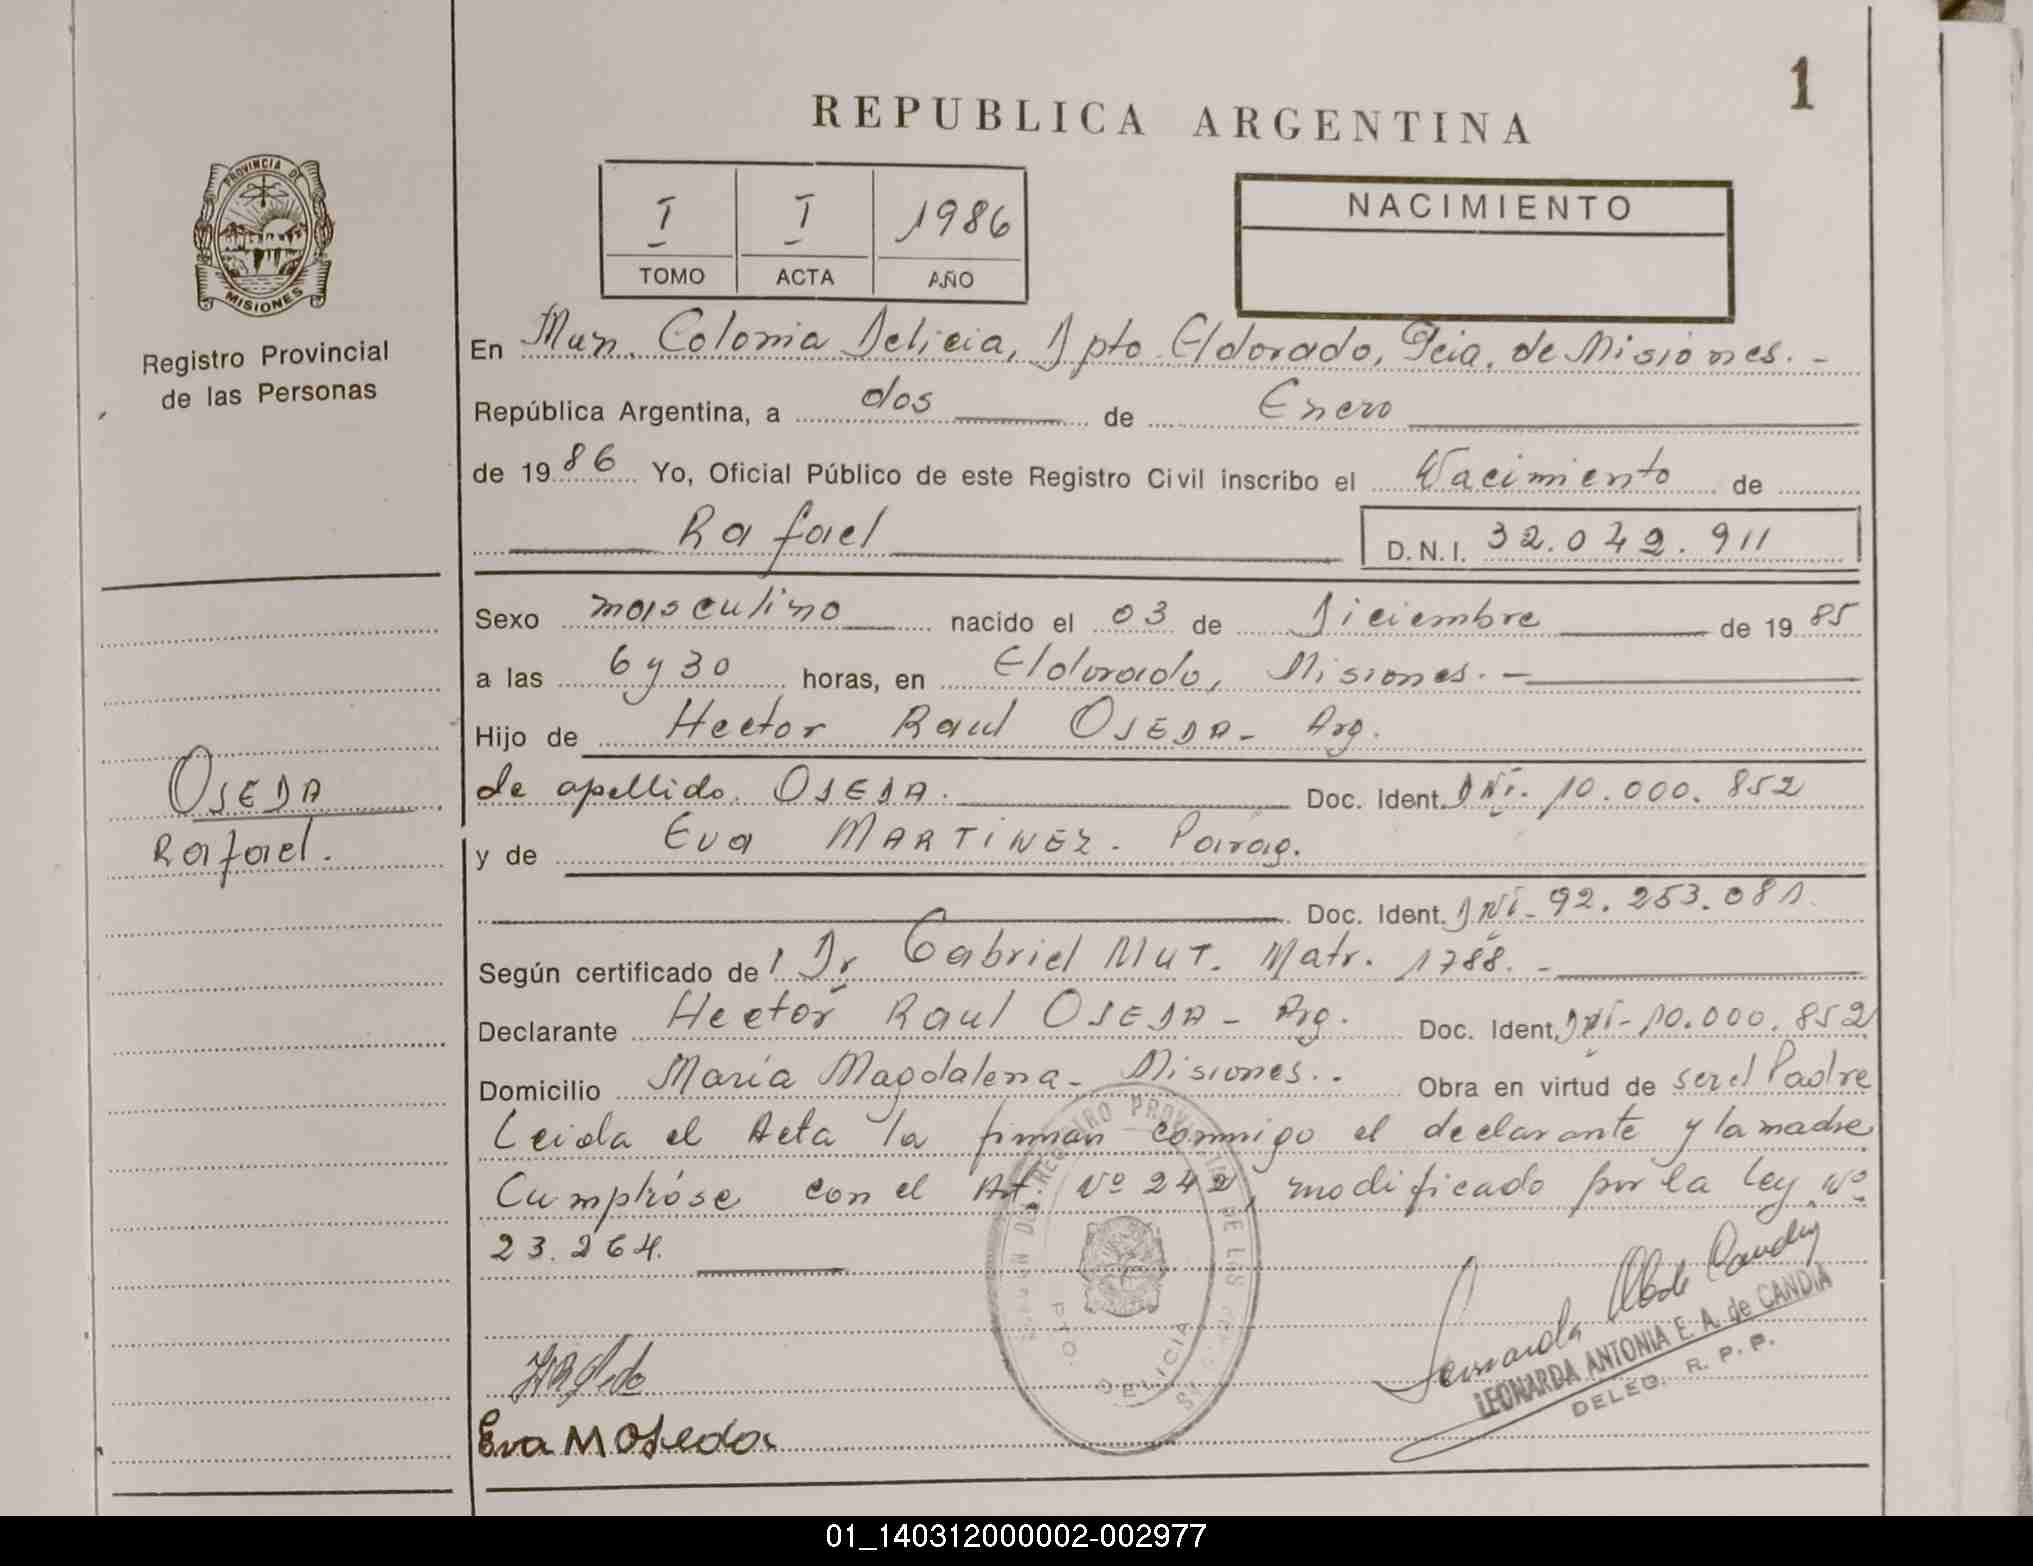 1
REPUBLICA ARGENTINA
PROVINCIA DE
MISIONES
Registro Provincial
de las Personas
I I 1986
TOMO ACTA AÑO
NACIMIENTO
En Mun. Colonia Delicia, Dpto Eldorado, Pcia. de Misiones. -
República Argentina, a dos de Enero
de 1986 Yo, Oficial Público de este Registro Civil inscribo el Nacimiento de
Rafael D.N.I. 32.042.911
Sexo masculino nacido el 03 de Diciembre de 1985
a las 6 y 30 horas, en Eldorado, Misiones. -
Hijo de Hector Raul OSEDA - Arg.
de apellido. OSEDA. Doc. Ident. DNi. 10.000.852
OSEDA
Rafael.
y de Eva MARTINEZ. Parag.
Doc. Ident. DNi- 92.253.081
Según certificado de Dr Gabriel MUT. Matr. 1788. -
Declarante Hector Raul OSEDA - Arg. Doc. Ident. DNi- 10.000.852
Domicilio María Magdalena - Misiones. . Obra en virtud de ser el Padre
Leida el Acta la firman conmigo el declarante y la madre
Cumplióse con el Art. Nº 242, modificado por la Ley Nº
23.264.
DELICIA
LEONARDA ANTONIA E. A. de CANDIA
DELEG. R. P. P.
Eva M Oseda
01_140312000002-002977